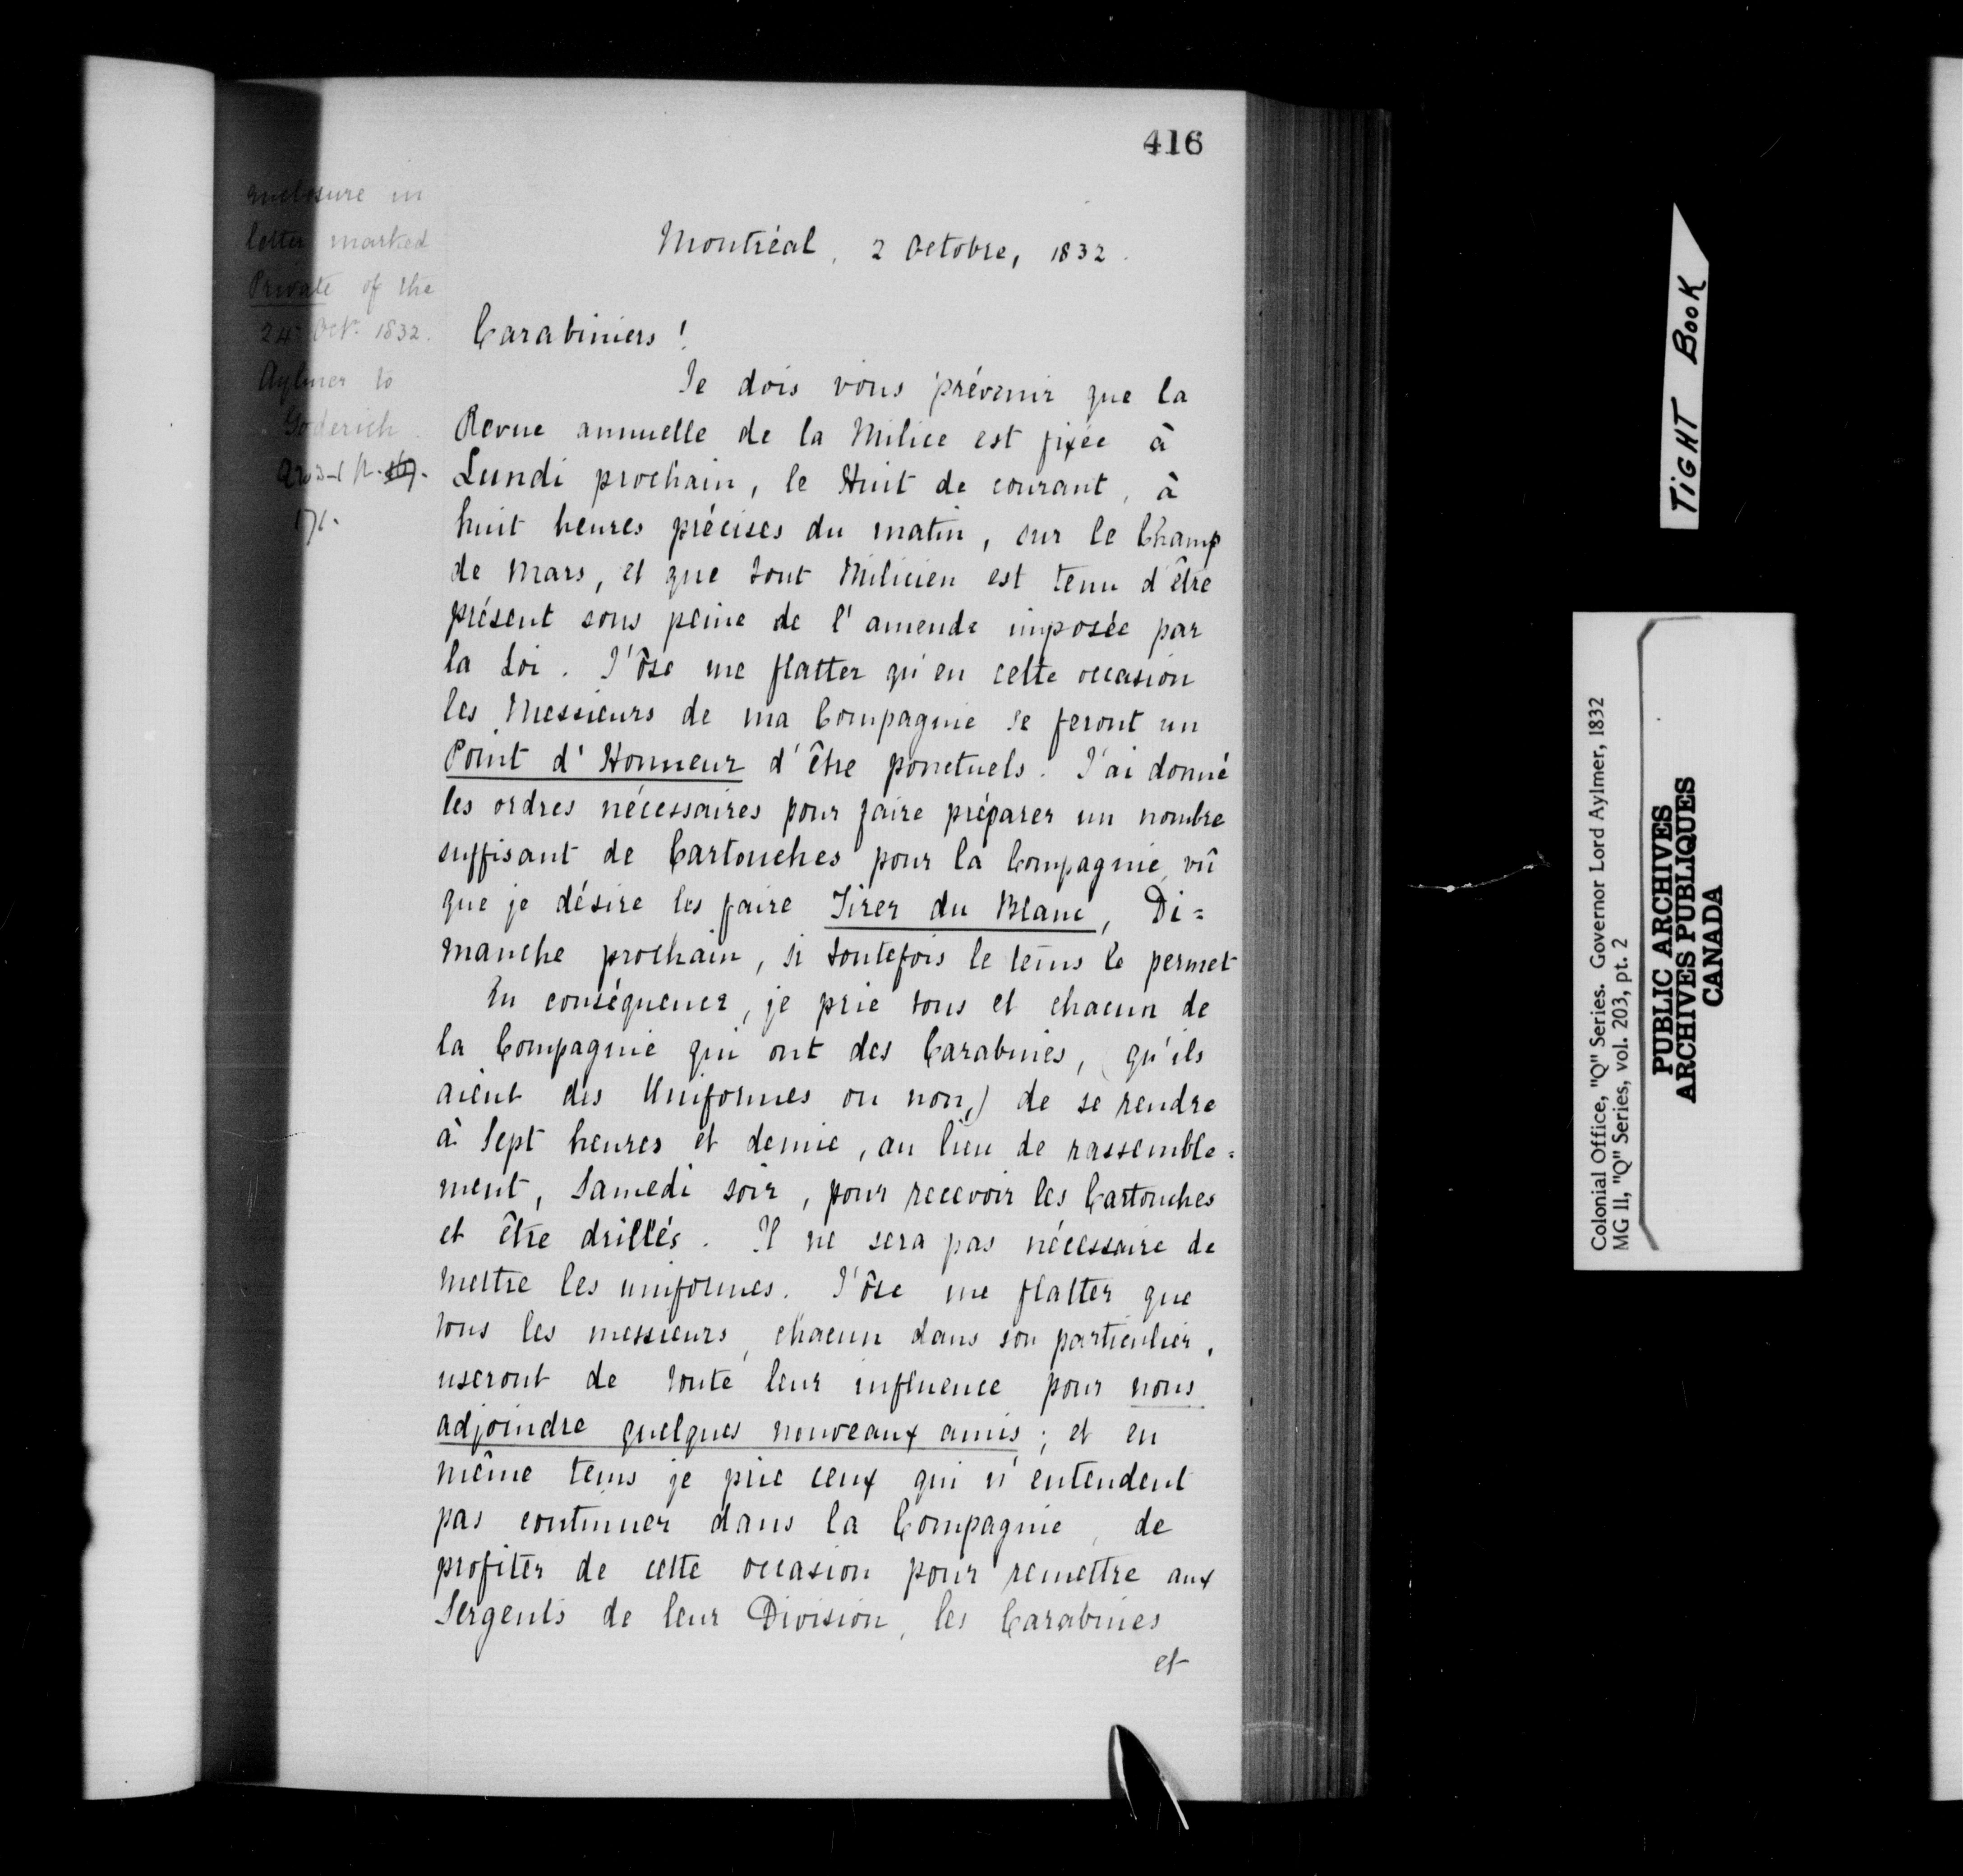 416
Enclosure in
letter marked
Private of the
24 Oct. 1832.
Aylmer to
Goderich
Q 203-1 p.
171.
Montréal, 2 Octobre, 1832.
Carabiniers!
Je dois vous prévenir que la
Revue annuelle de la Milice est fixée à
Lundi prochain, le Huit de courant, à
huit heures précises du matin, sur le Champ
de Mars, et que tout Milicien est tenu d'être
présent sous peine de l'amende imposée par
la Loi. J'ôse me flatter qu'en cette occasion
les Messieurs de ma Compagnie se feront un
Point d'Honneur d'être ponctuels. J'ai donné
les ordres nécessaires pour faire préparer un nombre
suffisant de Cartouches pour la Compagnie, vû
que je désire les faire Tirer du Blanc, Di=
manche prochain, si toutefois le tems le permet
En conséquence, je prie tous et chacun de
la Compagnie qui ont des Carabines, (qu'ils
aient des Uniformes ou non,) de se rendre
à Sept heures et demie, au lieu de rassemble=
ment, Samedi soir, pour recevoir les Cartouches
et être drillés. Il ne sera pas nécessaire de
mettre les uniformes. J'ôse me flatter que
tous les messieurs, chacun dans son particulier,
useront de toute leur influence pour nous
adjoindre quelques nouveaux amis; et en
même tems je prie ceux qui n'entendent
pas continuer dans la Compagnie, de
profiter de cette occasion pour remettre aux
Sergents de leur Division, les Carabines
et
TIGHT BOOK
Colonial Office, "Q" Series. Governor Lord Aylmer, 1832
MG 11, "Q" Series, vol. 203, pt. 2
PUBLIC ARCHIVES
ARCHIVES PUBLIQUES
CANADA